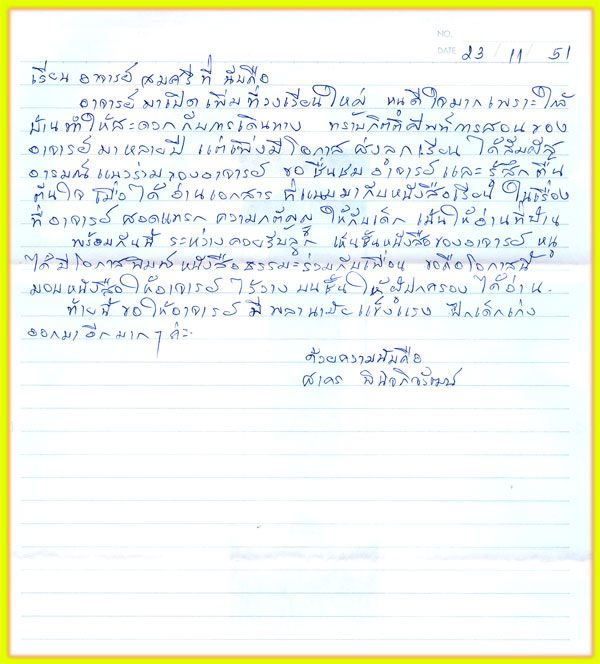 NO.
DATE 23 / 11 / 51
เรียน อาจารย์ สมศรี ที่ นับถือ
อาจารย์ มาเปิด เพิ่ม ที่วงเวียนใหญ่ หนูดีใจมาก เพราะใกล้
บ้าน ทำให้สะดวกกับการเดินทาง ทราบกิตติศัพท์การสอนของ
อาจารย์ มาหลายปี แต่เพิ่งมีโอกาส ส่งลูกเรียน ได้สัมผัส
อารมณ์ แนวร่วมของอาจารย์ ขอชื่นชม อาจารย์ และ รู้สึก ตื่น
ตันใจ เมื่อได้ อ่านเอกสาร ที่แนบมากับหนังสือเรียน ในเรื่อง
ที่ อาจารย์ สอดแทรก ความกตัญญู ให้กับเด็ก เน้นให้อ่านที่บ้าน
พร้อมกันนี้ ระหว่างคอยรับลูก เห็นชั้นหนังสือของอาจารย์ หนู
ได้มีโอกาสพิมพ์ หนังสือธรรมะร่วมกับเพื่อน ขอถือโอกาสนี้
มอบหนังสือให้อาจารย์ ไว้วาง บนชั้นให้ผู้ปกครอง ได้อ่าน.
ท้ายนี้ ขอให้อาจารย์ มี พลานามัย แข็งแรง ฝึกเด็กเก่ง
ออกมาอีกมาก ๆ ค่ะ.
ด้วยความนับถือ
สาคร